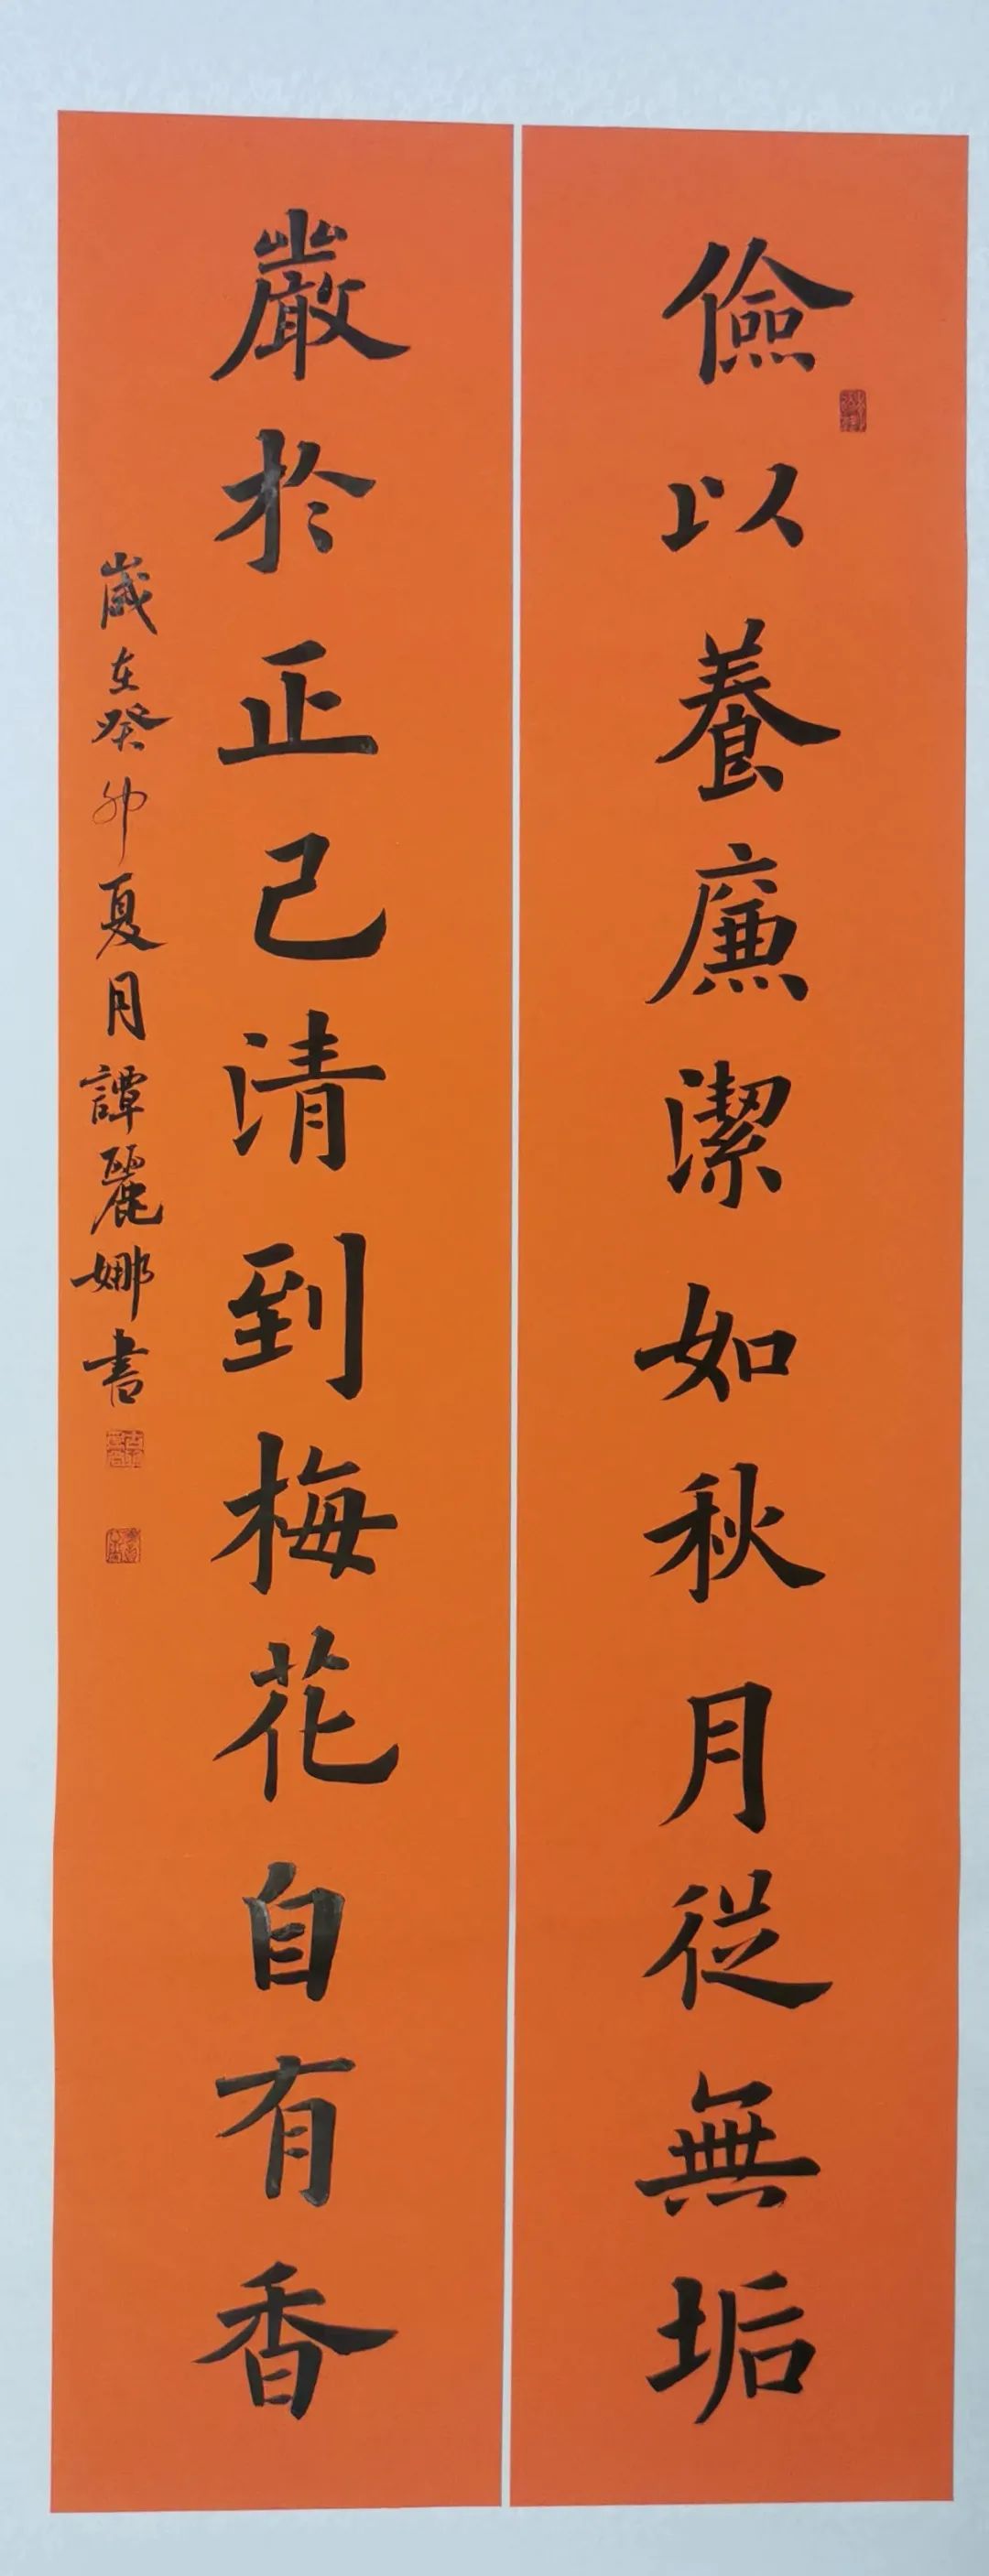 儉以養廉潔如秋月從無垢
嚴於正己清到梅花自有香
歲在癸卯夏月譚麗娜書